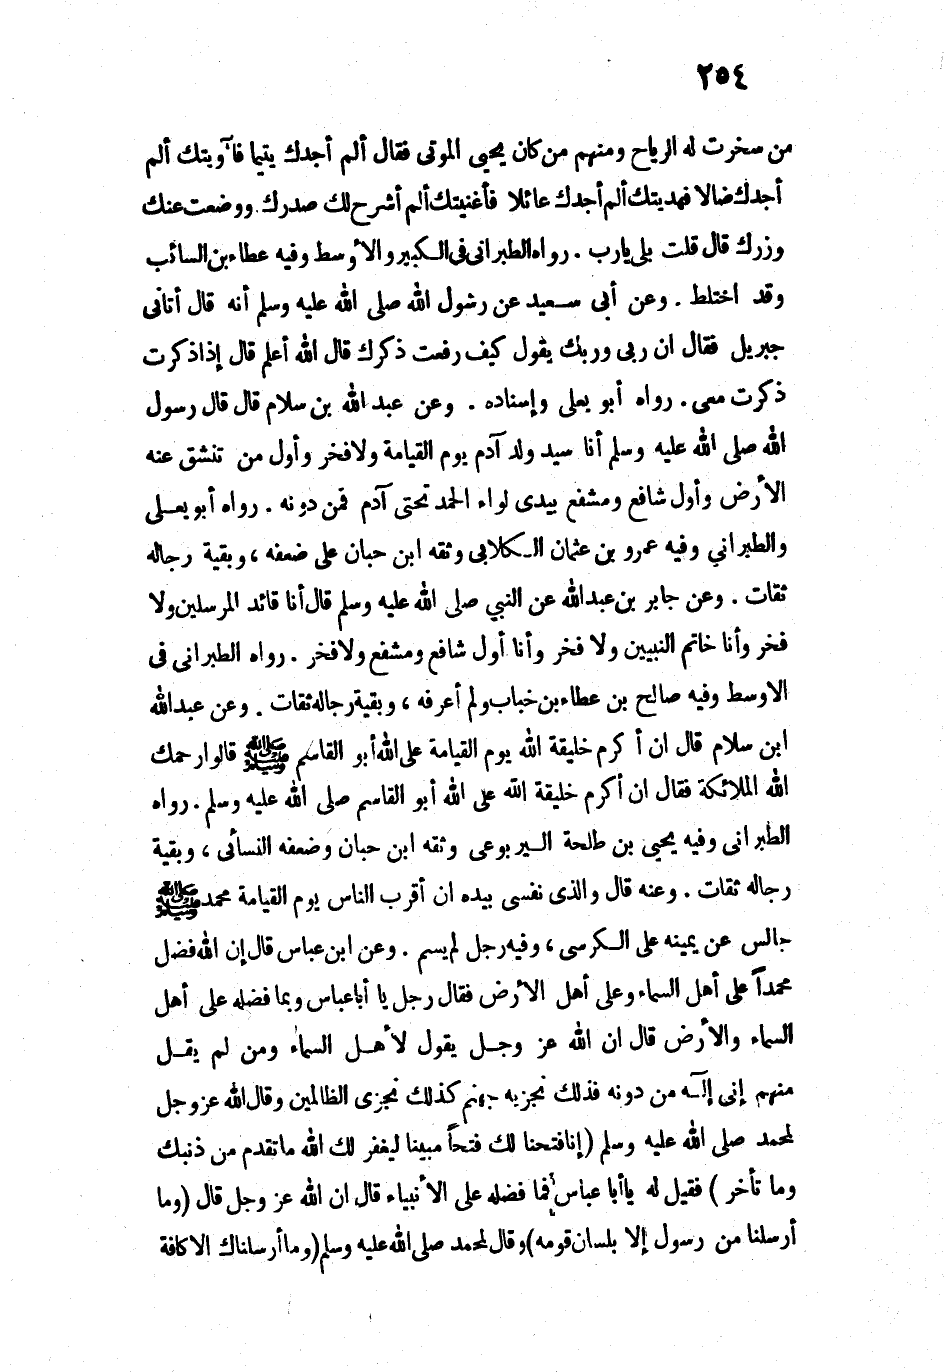 ٢٥٤
من سخرت له الرياح ومنهم من كان يحيى الموتى فقال ألم أجدك يتيما فآويتك ألم
أجدك ضالا فهديتك ألم أجدك عائلا فأغنيتك ألم أشرح لك صدرك ووضعت عنك
وزرك قال قلت بلى يارب . رواه الطبرانى فى الكبير والأوسط وفيه عطاء بن السائب
وقد اختلط . وعن أبى سعيد عن رسول الله صلى الله عليه وسلم أنه قال أتانى
جبريل فقال ان ربى وربك يقول كيف رفعت ذكرك قال الله أعلم قال إذا ذكرت
ذكرت معى . رواه أبو يعلى وإسناده . وعن عبد الله بن سلام قال قال رسول
الله صلى الله عليه وسلم أنا سيد ولد آدم يوم القيامة ولا فخر وأول من تنشق عنه
الأرض وأول شافع ومشفع بيدى لواء الحمد تحتى آدم فمن دونه . رواه أبو يعلى
والطبراني وفيه عمرو بن عثمان الكلابى وثقه ابن حبان على ضعفه ، وبقية رجاله
ثقات . وعن جابر بن عبدالله عن النبي صلى الله عليه وسلم قال أنا قائد المرسلين ولا
فخر وأنا خاتم النبيين ولا فخر وأنا أول شافع ومشفع ولا فخر . رواه الطبرانى فى
الاوسط وفيه صالح بن عطاء بن خباب ولم أعرفه ، وبقية رجاله ثقات . وعن عبدالله
ابن سلام قال ان أكرم خليقة الله يوم القيامة على الله أبو القاسم ﷺ قالوا رحمك
الله الملائكة فقال ان أكرم خليقة الله على الله أبو القاسم صلى الله عليه وسلم . رواه
الطبرانى وفيه يحيى بن طلحة اليربوعى وثقه ابن حبان وضعفه النسائى ، وبقية
رجاله ثقات . وعنه قال والذى نفسى بيده ان أقرب الناس يوم القيامة محمد ﷺ
جالس عن يمينه على الكرسى ، وفيه رجل لم يسم . وعن ابن عباس قال إن الله فضل
محمداً على أهل السماء وعلى أهل الأرض فقال رجل يا أبا عباس وبما فضله على أهل
السماء والأرض قال ان الله عز وجل يقول لأهل السماء ومن لم يقل
منهم إنى إله من دونه فذلك نجزيه جهنم كذلك نجزى الظالمين وقال الله عز وجل
لمحمد صلى الله عليه وسلم (إنا فتحنا لك فتحاً مبينا ليغفر لك الله ما تقدم من ذنبك
وما تأخر ) فقيل له يا أبا عباس فما فضله على الأنبياء قال ان الله عز وجل قال (وما
أرسلنا من رسول إلا بلسان قومه) وقال لمحمد صلى الله عليه وسلم (وما أرسلناك الا كافة